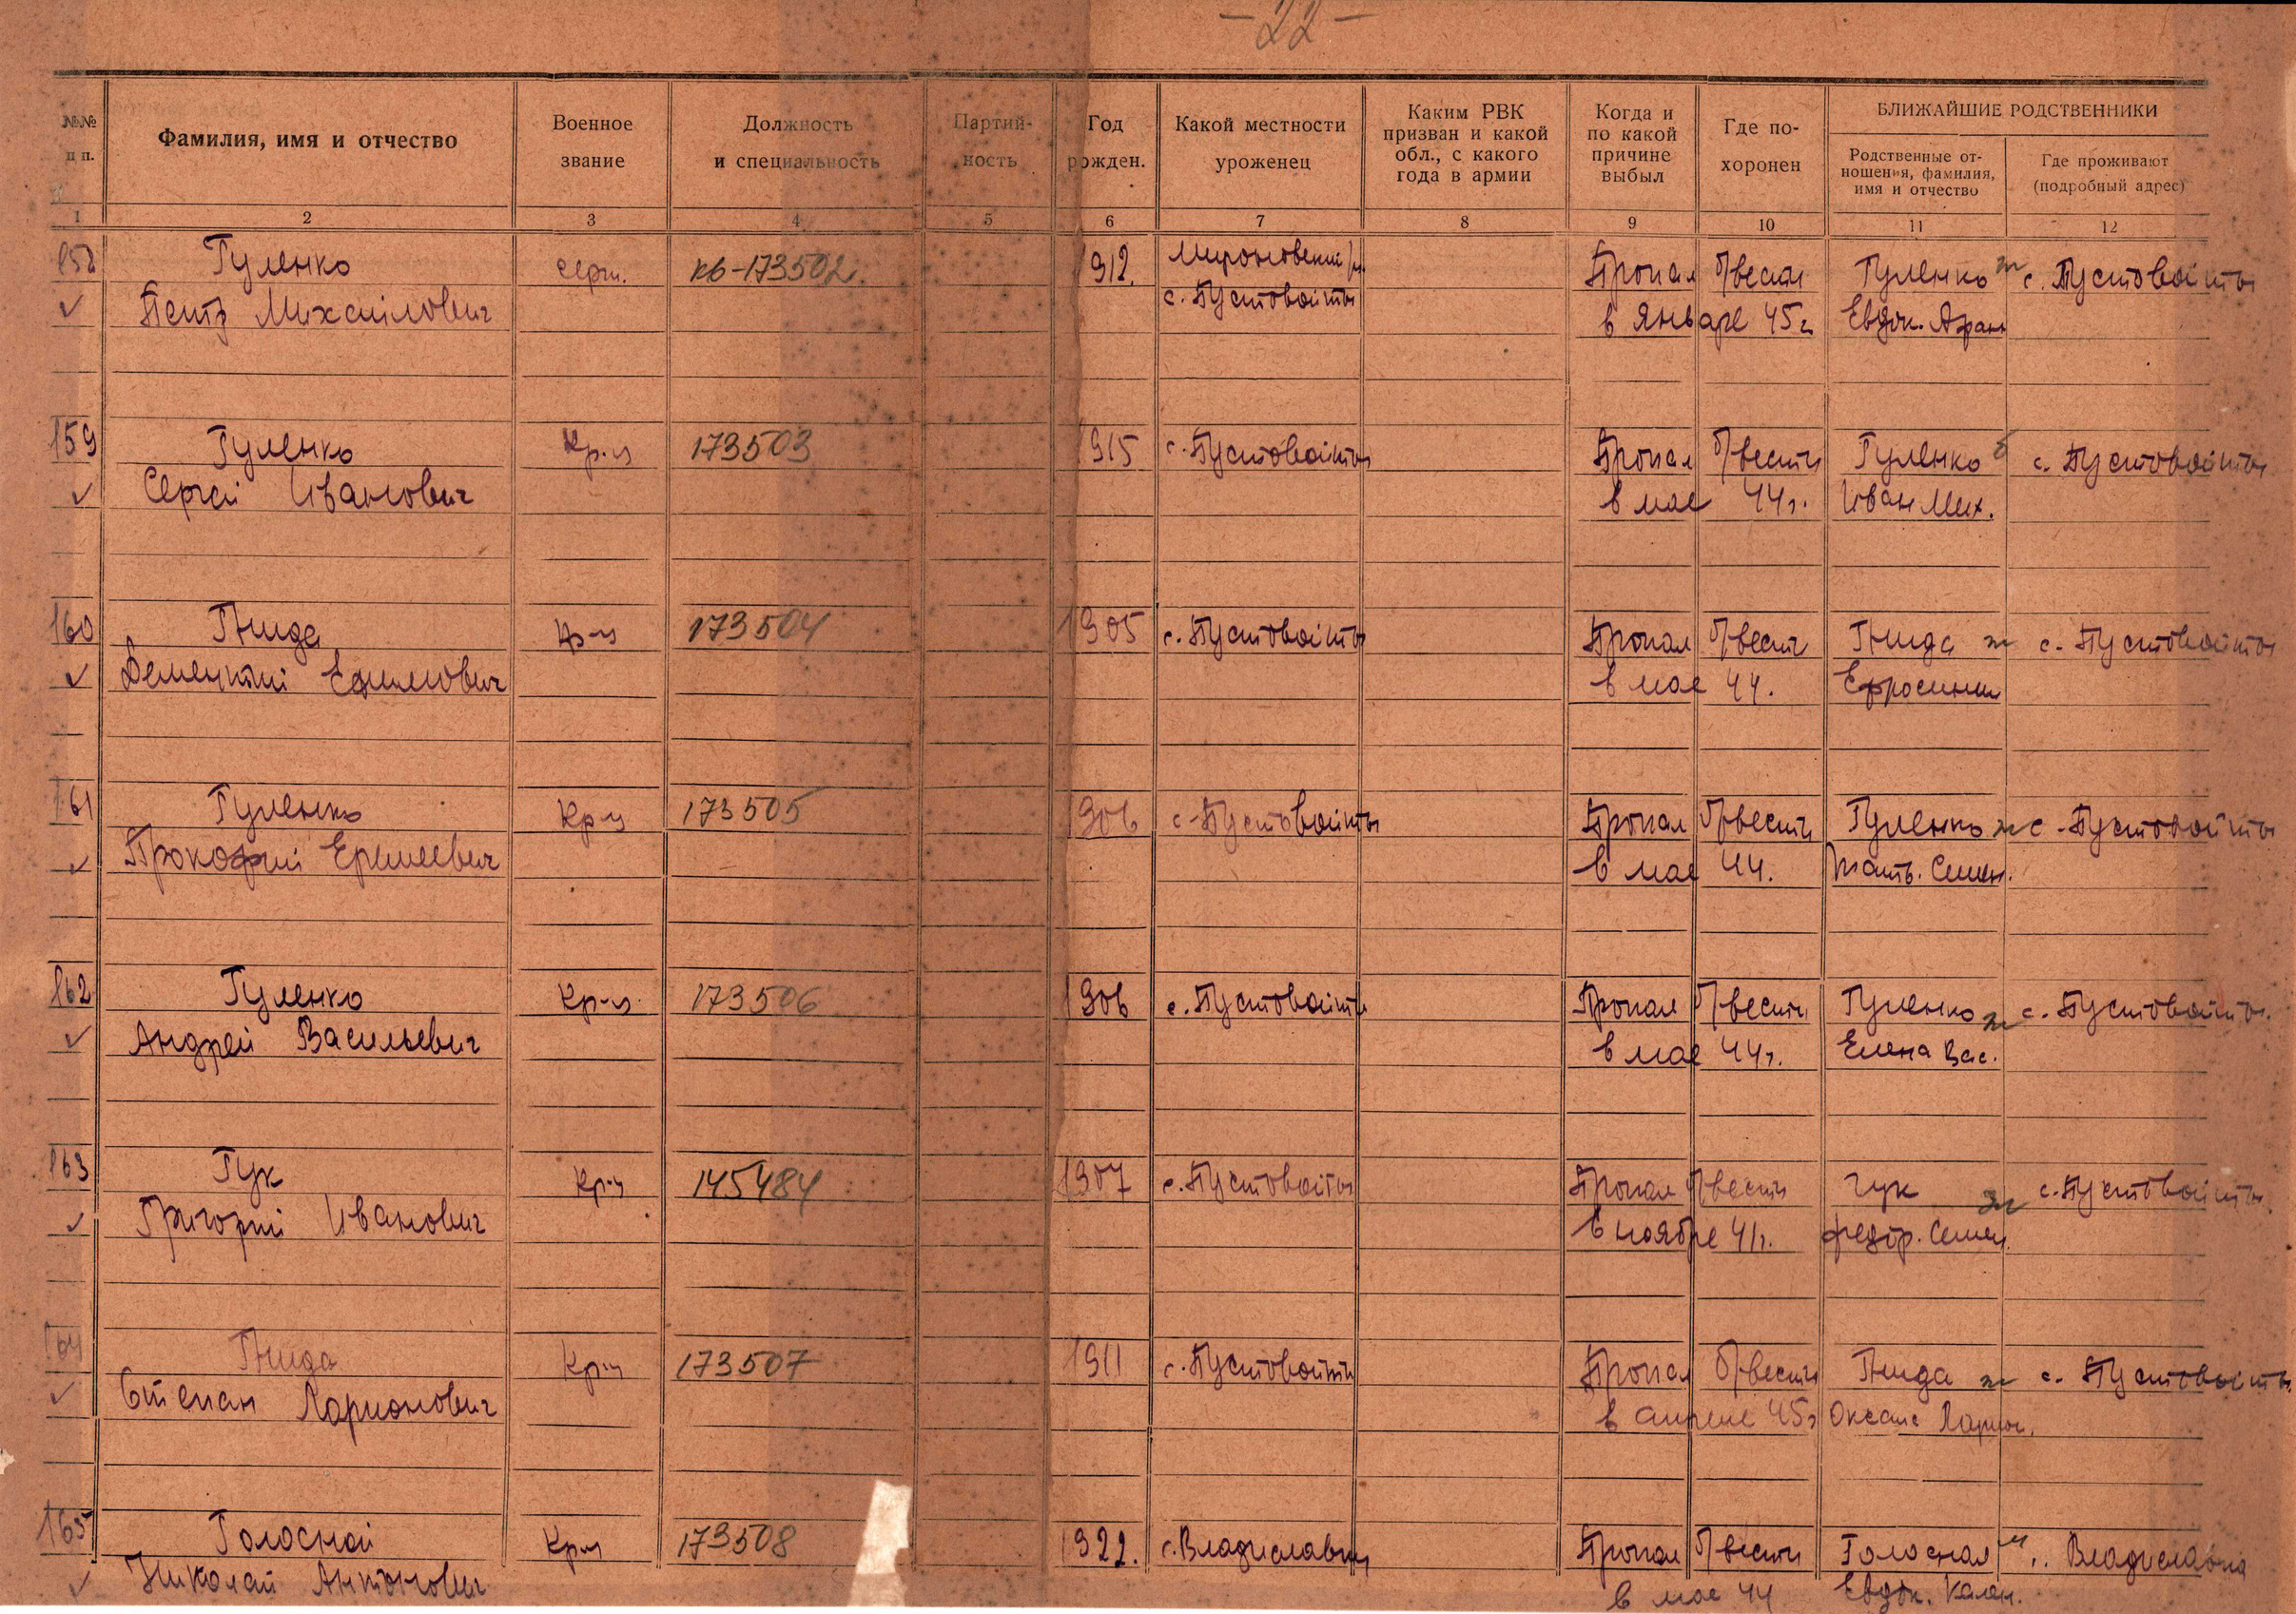 -22-
№№ п п.
Фамилия, имя и отчество
Военное звание
Должность и специальность
Партий-ность
Год рожден.
Какой местности уроженец
Каким РВК призван и какой обл., с какого года в армии
Когда и по какой причине выбыл
Где по-хоронен
БЛИЖАЙШИЕ РОДСТВЕННИКИ
Родственные от-ношения, фамилия, имя и отчество
Где проживают (подробный адрес)
1 2 3 4 5 6 7 8 9 10 11 12
158 Гуленко серж. кв-173502. 1912. Мироновский р-н Пропал б/вести Гуленко ж с. Пустовойты
Петр Михайлович с. Пустовойты в январе 45г. Евдок. Афан
159 Гуленко Кр-ц 173503 1915 с. Пустовойты Пропал б/вести Гуленко с. Пустовойты
Сергей Иванович в мае 44г. Иван Мих.
160 Гнида Кр-ц 173504 1905 с. Пустовойты Пропал б/вести Гнида ж с. Пустовойты
Ефимович в мае 44. Ефросиния
161 Гуленко Кр-ц 173505 1906 с. Пустовойты Пропал б/вести Гуленко ж с. Пустовойты
Прокофий Еремеевич в мае 44. Семен.
162 Гуленко Кр-ц 173506 1906 с. Пустовойты Пропал б/вести Гуленко ж с. Пустовойты.
Андрей Васильевич в мае 44г. Елена Вас.
163 Гук Кр-ц 145484 1907 с. Пустовойты Пропал б/вести Гук ж с. Пустовойты
Григорий Иванович в ноябре 41г. Федор. Семен.
164 Гнида Кр-ц 173507 1911 с. Пустовойты Пропал б/вести Гнида ж с. Пустовойты
Степан Ларионович в апреле 45г Оксана Ларион.
165 Голосной Кр-ц 173508 1922. с. Владиславка Пропал б/вести Голосная м Владиславка
Николай Антонович в мае 44 Евдок. Кален.